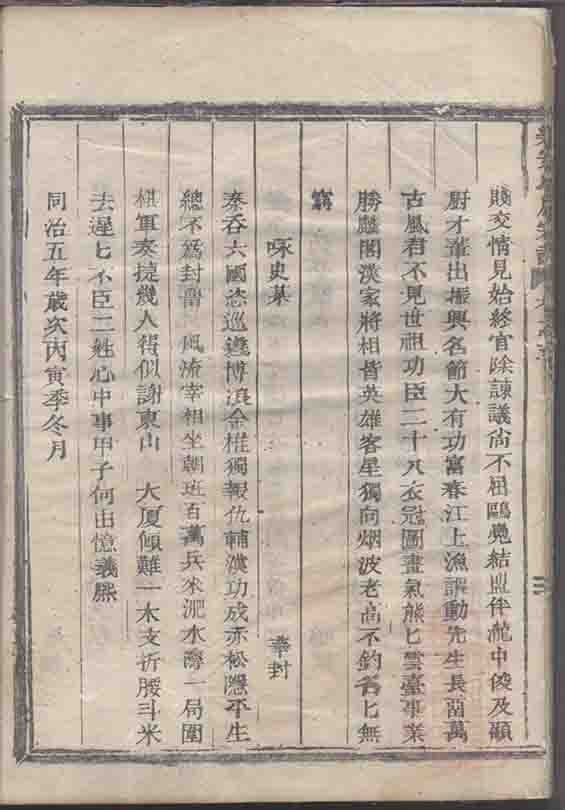 賤交情見始終官除諫議尚不屈鷗鳬結盟伴龍中俊及顧
廚才輩出振興名節大有功富春江上漁謳動先生長留萬
古風君不見世祖功臣二十八衣冠圖畫氣熊匕雲臺事業
勝麟閣漢家將相皆英雄客星獨向烟波老高不釣名匕無
窮
咏史基 奉封
秦吞六國恣巡遊博浪金椎獨報仇輔漢功成赤松隱平生
總不爲封畱 風流宰相坐朝班百萬兵來淝水灣一局圍
棋軍奏捷幾人得似謝東山 大厦傾難一木支折腰斗米
去遲匕不臣二姓心中事甲子何由憶義熙
同治五年歲次丙寅季冬月